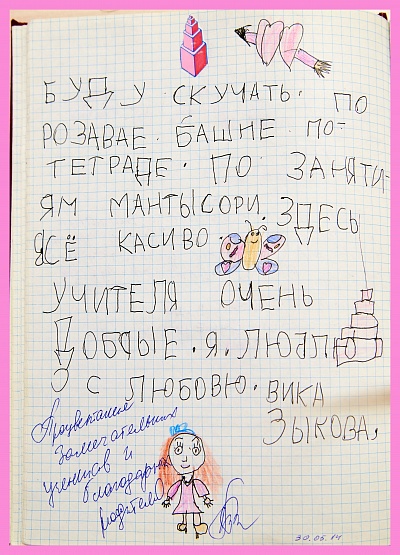 БУДУ СКУЧАТЬ. ПО
РОЗАВАЕ. БАШНЕ. ПО-
ТЕТРАДЕ. ПО ЗАНЯТИ-
ЯМ МАНТЫСОРИ. ЗДЕСЬ
ВСЁ КАСИВО.
УЧИТЕЛЯ ОЧЕНЬ
ДОБРЫЕ. Я. ЛЮБЛЮ
С ЛЮБОВЮ. ВИКА
ЗЫКОВА.
Процветания
замечательных
учеников и
благодарных
родителей
30.05.14